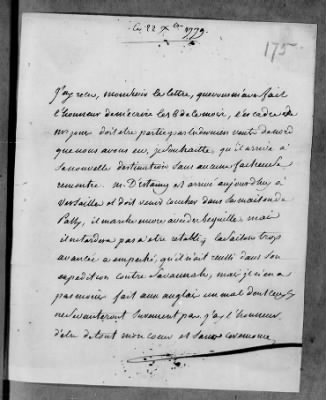 ce 22 Xbre 1779.
175
J'ay reçu, monsieur la lettre, que vous m'avez fait
l'honneur de m'écrire les 8 de ce mois,
doit etre partie par le dernier vent de nord
que nous avons eu, je souhaitte qu'il arrive à
sa nouvelle destination sans aucune facheuse
rencontre. m. D'estaing est arrivé aujourd'huy à
Versaille et doit venir coucher dans sa maison de
Passy, il marche encore avec des bequille mais
il ne tardera pas à etre retabli, la saison trop
avancée a empeché, qu'il n'ait reussi dans son
expedition contre Savannah, mais il n'en a
pas moins fait aux anglais un mal dont
ne se vanteront surement pas. j'ay l'honneur
d'etre de tout mon coeur et sans ceremonie,